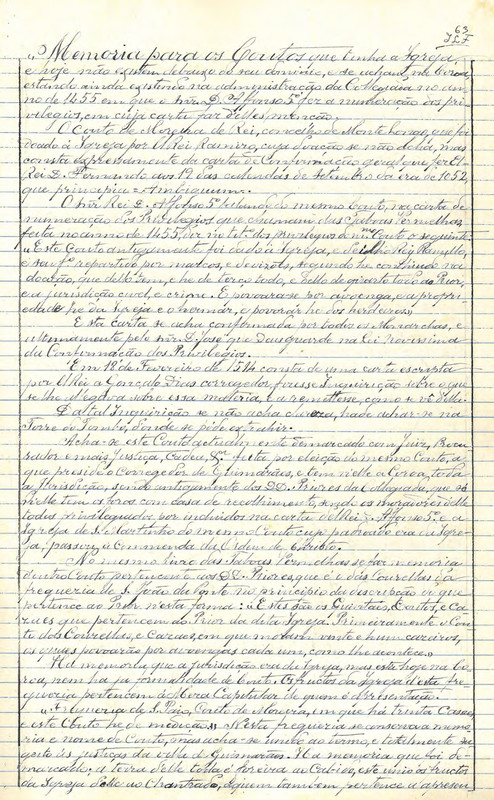 63
J.L.F.
"Memoria para os Coutos que tinha a Igreja,
e hoje não existem debaixo do seu dominio, e se acham na Coroa,
estando ainda existindo na administração da Collegiada no an-
no de 1455 em que o Snr. D. Affonso 5º fez a numeração dos pri-
vilegios, em cuja carta faz d'elles menção.
O Couto de Moreira de Rei, concelho de Monte-longo, que foi
doado á Igreja por El Rei Ramiro, cuja doação se não acha, mas
consta expressamente da carta de Confirmação geral que fez El-
Rei D. Fernando aos 12 das calendas de Setembro da era de 1052,
que principia = Ambiguum =.
O Snr. Rei D. Affonso 5º fallando do mesmo Couto, na carta de
numeração dos Privilegios que chamam das Taboas Vermelhas
feita no anno de 1455, diz no tit. dos privilegios do mmo Couto o seguinte:
"Este Couto antigamente foi dado á Igreja, e
é seu repartido por marcos, e devisões, segundo he conthiudo na
doação, que delle tem, e he de todo, e delle do todo ao Prior,
e a jurisdicção civel, e crime. E povorasse por avoenga, e a propri-
edade he da Igreja e o herdar, e povorar he dos herdeiros"
Esta carta se acha confirmada por todos os Monarchas, e
ultimamente pelo Snr. D. José que Deus guarde na Lei novissima
da Confirmação dos Privilegios.
Em 18 de Fevereiro de 1514 consta de uma carta escripta
por El Rei a Gonçalo Dias corregedor, fizesse Inquirição sobre o que
se lhe allegava sobre essa materia, e a remettesse, como se vê della.
E a tal Inquirição se não acha, hade achar-se na
Torre do Tombo, d'onde se póde extrahir.
Acha-se este Couto actualmente demarcado com Juiz, Procu-
rador e mais Justiça, Cadeia, &a feita por eleição do mesmo Couto, a
que preside o Corregedor de Guimarães, e tem n'elle a Coroa toda
a Jurisdicção, sendo antigamente dos DD. Priores da Collegiada, que só
n'elle tem os foros com casa de recolhimento, sendo os moradores d'elle
todos privilegiados por incluidos na carta d'El Rei D. Affonso 5º, e a
Igreja de S. Martinho do mesmo Couto cujo padroado era da Igre-
ja, passou a Commenda da Ordem de Christo.
No mesmo livro das Taboas Vermelhas se faz memoria
d'outro Couto pertencente aos DD. Priores, que é o das Courellas da
freguezia de S. João da Ponte no principio da descripção do que
pertence ao Prior nesta forma: "Estes são os Quintais, Coutos, e Ca-
zaes que pertencem ao Prior da dita Igreja. Primeiramente o Cou-
to dos Courellas, e Cazaes, em que moram vinte e hum caseiros,
os quaes povoarão por avoenga cada um, como lhe acontece."
Ha memoria que a jurisdicção era da Igreja, mas está hoje na Co-
roa, nem ha já formalidade de Couto. Os fructos da Igreja d'esta fre-
guezia pertencem á Meza Capitular de quem é a presentação.
"Freguezia de S. Payo, Couto de Moreira, em que há trinta Cazaes
e este Couto he de medição." N'esta freguezia se conserva a memo-
ria e nome de Couto, mas acha-se unido ao termo, e totalmente su-
geito ás justiças da villa de Guimarães. Ha memoria que foi de-
marcado; a terra d'elle toda é foreira ao Cabido, está unido os fructos
da Igreja d'elle ao Chantrado, a quem tambem pertence a apresen